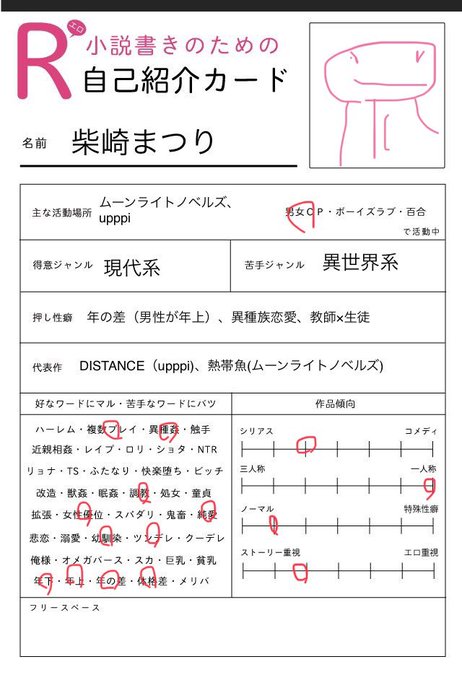 R エロ
小説書きのための
自己紹介カード
名前 柴崎まつり
主な活動場所 ムーンライトノベルズ、
upppi
男女CP・ボーイズラブ・百合
で活動中
得意ジャンル 現代系
苦手ジャンル 異世界系
押し性癖 年の差（男性が年上）、異種族恋愛、教師×生徒
代表作 DISTANCE（upppi)、熱帯魚(ムーンライトノベルズ)
好なワードにマル・苦手なワードにバツ
ハーレム・複数プレイ・異種姦・触手
近親相姦・レイプ・ロリ・ショタ・NTR
リョナ・TS・ふたなり・快楽堕ち・ビッチ
改造・獣姦・眠姦・調教・処女・童貞
拡張・女性優位・スパダリ・鬼畜・純愛
悲恋・溺愛・幼馴染・ツンデレ・クーデレ
俺様・オメガバース・スカ・巨乳・貧乳
年下・年上・年の差・体格差・メリバ
作品傾向
シリアス コメディ
三人称 一人称
ノーマル 特殊性癖
ストーリー重視 エロ重視
フリースペース